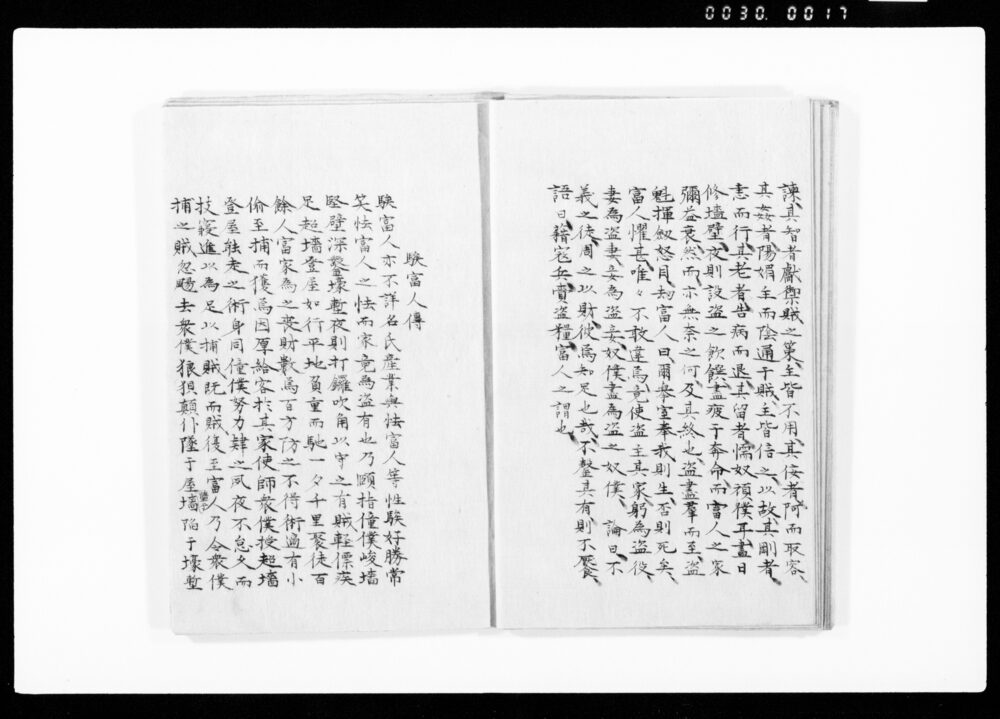 0030.0017
諫、其智者獻禦賊之策、主皆不用、其佞者阿而取容、
其姦者陽媚主而陰通于賊、主皆信之、以故其剛者
恚而行、其老者告病而退、其留者懦奴頑僕耳、晝日
修墻壁、夜則設盜之飲饌、盡疲于奔命、而富人之家
彌益衰、然而亦無奈之何、及其終也、盜盡羣而至、盜
魁揮劔怒目、刧富人曰、爾擧室奉我則生、否則死矣、
富人懼甚、唯々不敢違焉、竟使盜主其家、躬為盜役、
妻為盜妻、妾為盜妾、奴僕盡為盜之奴僕、論曰、不
義之徒、周之以財、彼焉知足也哉、不罄其有則不饜、
語曰、藉寇兵齎盜糧、富人之謂也、
騃富人傳
騃富人亦不詳名氏產業與怯富人等性騃好勝常
笑怯富人之怯而家竟為盜有也乃頤指僮僕峻墻
堅壁深鑿壕塹夜則打鑼吹角以守之有賊輕僄疾
足超墻登屋如行平地負重而馳一夕千里聚徒百
餘人富家為之喪財數焉百方防之不得術適有小
偷至捕而獲焉因厚給客於其家使師衆僕授超墻
登屋馳走之術身同僮僕努力肄之夙夜不怠久而
技寖進以為足以捕賊既而賊復至富人乃令衆僕
捕之賊忽颺去衆僕狼狽顛仆墜于屋墻陷于壕塹